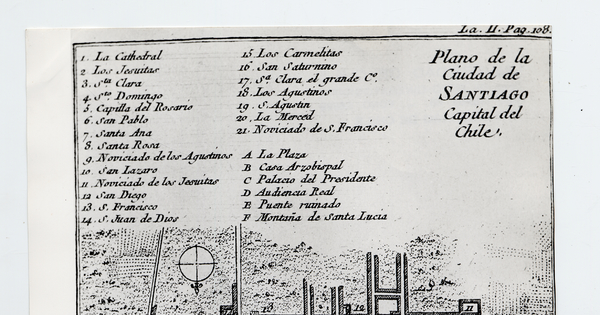 La. II. Pag. 108.
Plano de la
Ciudad de
SANTIAGO
Capital del
Chile.
1. La Cathedral
2 Los Jesuitas
3. Sta Clara
4. Sto Domingo
5. Capilla del Rosario
6. San Pablo
7. Santa Ana
8. Santa Rosa
9. Noviciado de los Agustinos
10. San Lazaro
11. Noviciado de los Jesuitas
12 San Diego
13. S. Francisco
14. S. Juan de Dios
15. Los Carmelitas
16. San Saturnino
17. Sa Clara el grande Co.
18. Los Agustinos
19. S. Agustin
20. La Merced
21. Noviciado de S. Francisco
A La Plaza
B Casa Arzobispal
C Palacio del Presidente
D Audiencia Real
E Puente ruinado
F Montaña de Santa Lucia
9
13
12
11